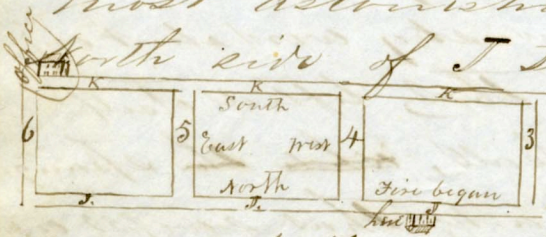 most astonish
North side of J
Office
K K K
South
6 5 East West 4 3
North Fire began
J. J. J
here